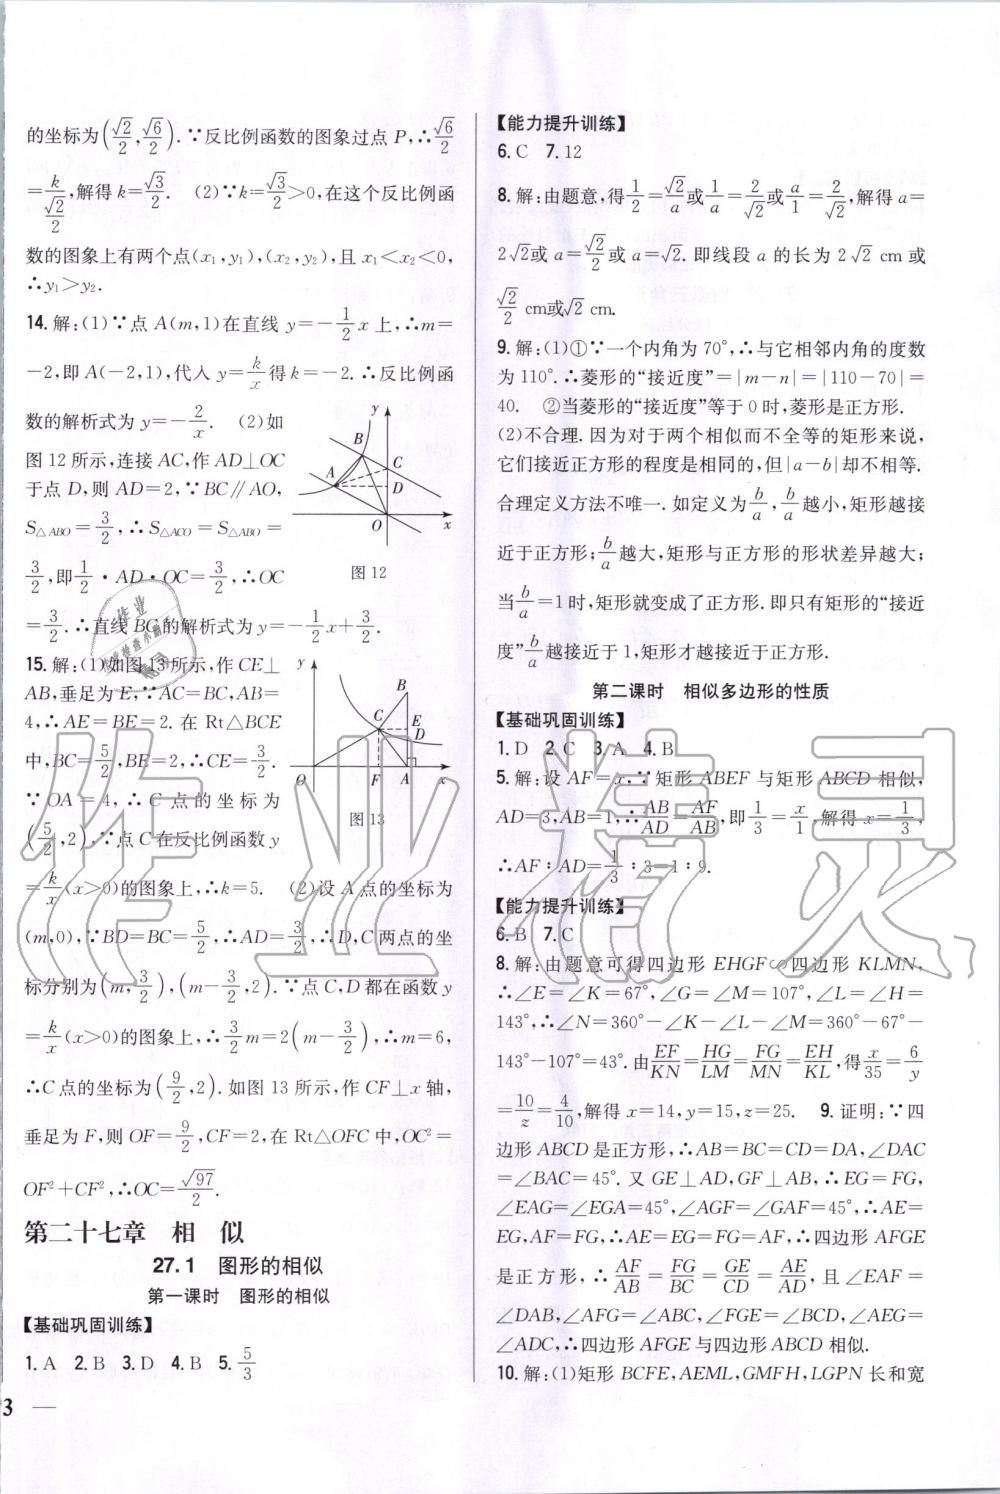 的坐标为(√2/2,√6/2).∵反比例函数的图象过点 P,∴√6/2
=k/(√2/2),解得 k=√3/2. (2)∵k=√3/2>0,在这个反比例函
数的图象上有两个点(x₁,y₁),(x₂,y₂),且 x₁<x₂<0,
∴y₁>y₂.
14.解:(1)∵点 A(m,1)在直线 y=-1/2x 上,∴m=
-2,即 A(-2,1),代入 y=k/x得 k=-2.∴反比例函
数的解析式为 y=-2/x. (2)如
图 12 所示,连接 AC,作 AD⊥OC
于点 D,则 AD=2,∵BC∥AO,
S△ABO=3/2,∴S△ACO=S△ABO=
3/2,即1/2·AD·OC=3/2,∴OC
=3/2.∴直线 BC 的解析式为 y=-1/2x+3/2.
y
B
A
C
D
O
x
图 12
15.解:(1)如图 13 所示,作 CE⊥
AB,垂足为 E,∵AC=BC,AB=
4,∴AE=BE=2.在 Rt△BCE
中,BC=5/2,BE=2,∴CE=3/2.
∵OA=4,∴C 点的坐标为
(5/2,2),∵点 C 在反比例函数 y
=k/x(x>0)的图象上,∴k=5. (2)设 A 点的坐标为
(m,0),∵BD=BC=5/2,∴AD=3/2,∴D,C 两点的坐
标分别为(m,3/2),(m-3/2,2).∵点 C,D 都在函数 y
=k/x(x>0)的图象上,∴3/2m=2(m-3/2),∴m=6,
∴C 点的坐标为(9/2,2).如图 13 所示,作 CF⊥x 轴,
垂足为 F,则 OF=9/2,CF=2,在 Rt△OFC 中,OC²=
OF²+CF²,∴OC=√97/2.
y
B
C
E
D
O
F
A
x
图 13
第二十七章 相 似
27.1 图形的相似
第一课时 图形的相似
【基础巩固训练】
1.A 2.B 3.D 4.B 5.5/3
3 —
【能力提升训练】
6.C 7.12
8.解:由题意,得1/2=√2/a或1/a=2/√2或a/1=2/√2,解得 a=
2√2或 a=√2/2或 a=√2.即线段 a 的长为 2√2 cm 或
√2/2 cm或√2 cm.
9.解:(1)①∵一个内角为 70°,∴与它相邻内角的度数
为 110°.∴菱形的“接近度”=|m-n|=|110-70|=
40. ②当菱形的“接近度”等于 0 时,菱形是正方形.
(2)不合理.因为对于两个相似而不全等的矩形来说,
它们接近正方形的程度是相同的,但|a-b|却不相等.
合理定义方法不唯一.如定义为b/a,b/a越小,矩形越接
近于正方形;b/a越大,矩形与正方形的形状差异越大;
当b/a=1时,矩形就变成了正方形.即只有矩形的“接近
度”b/a越接近于 1,矩形才越接近于正方形.
第二课时 相似多边形的性质
【基础巩固训练】
1.D 2.C 3.A 4.B
5.解:设 AF=x,∵矩形 ABEF 与矩形 ABCD 相似,
AD=3,AB=1,∴AB/AD=AF/AB,即1/3=x/1,解得 x=1/3,
∴AF∶AD=1/3∶3=1∶9.
【能力提升训练】
6.B 7.C
8.解:由题意可得四边形 EHGF∽四边形 KLMN,
∴∠E=∠K=67°,∠G=∠M=107°,∠L=∠H=
143°,∴∠N=360°-∠K-∠L-∠M=360°-67°-
143°-107°=43°.由EF/KN=HG/LM=FG/MN=EH/KL,得x/35=6/y
=10/z=4/10,解得 x=14,y=15,z=25. 9.证明:∵四
边形 ABCD 是正方形,∴AB=BC=CD=DA,∠DAC
=∠BAC=45°.又 GE⊥AD,GF⊥AB,∴EG=FG,
∠EAG=∠EGA=45°,∠AGF=∠GAF=45°,∴AE=
EG,AF=FG,∴AE=EG=FG=AF,∴四边形 AFGE
是正方形,∴AF/AB=FG/BC=GE/CD=AE/AD,且∠EAF=
∠DAB,∠AFG=∠ABC,∠FGE=∠BCD,∠AEG=
∠ADC,∴四边形 AFGE 与四边形 ABCD 相似.
10.解:(1)矩形 BCFE,AEML,GMFH,LGPN 长和宽
作业精灵